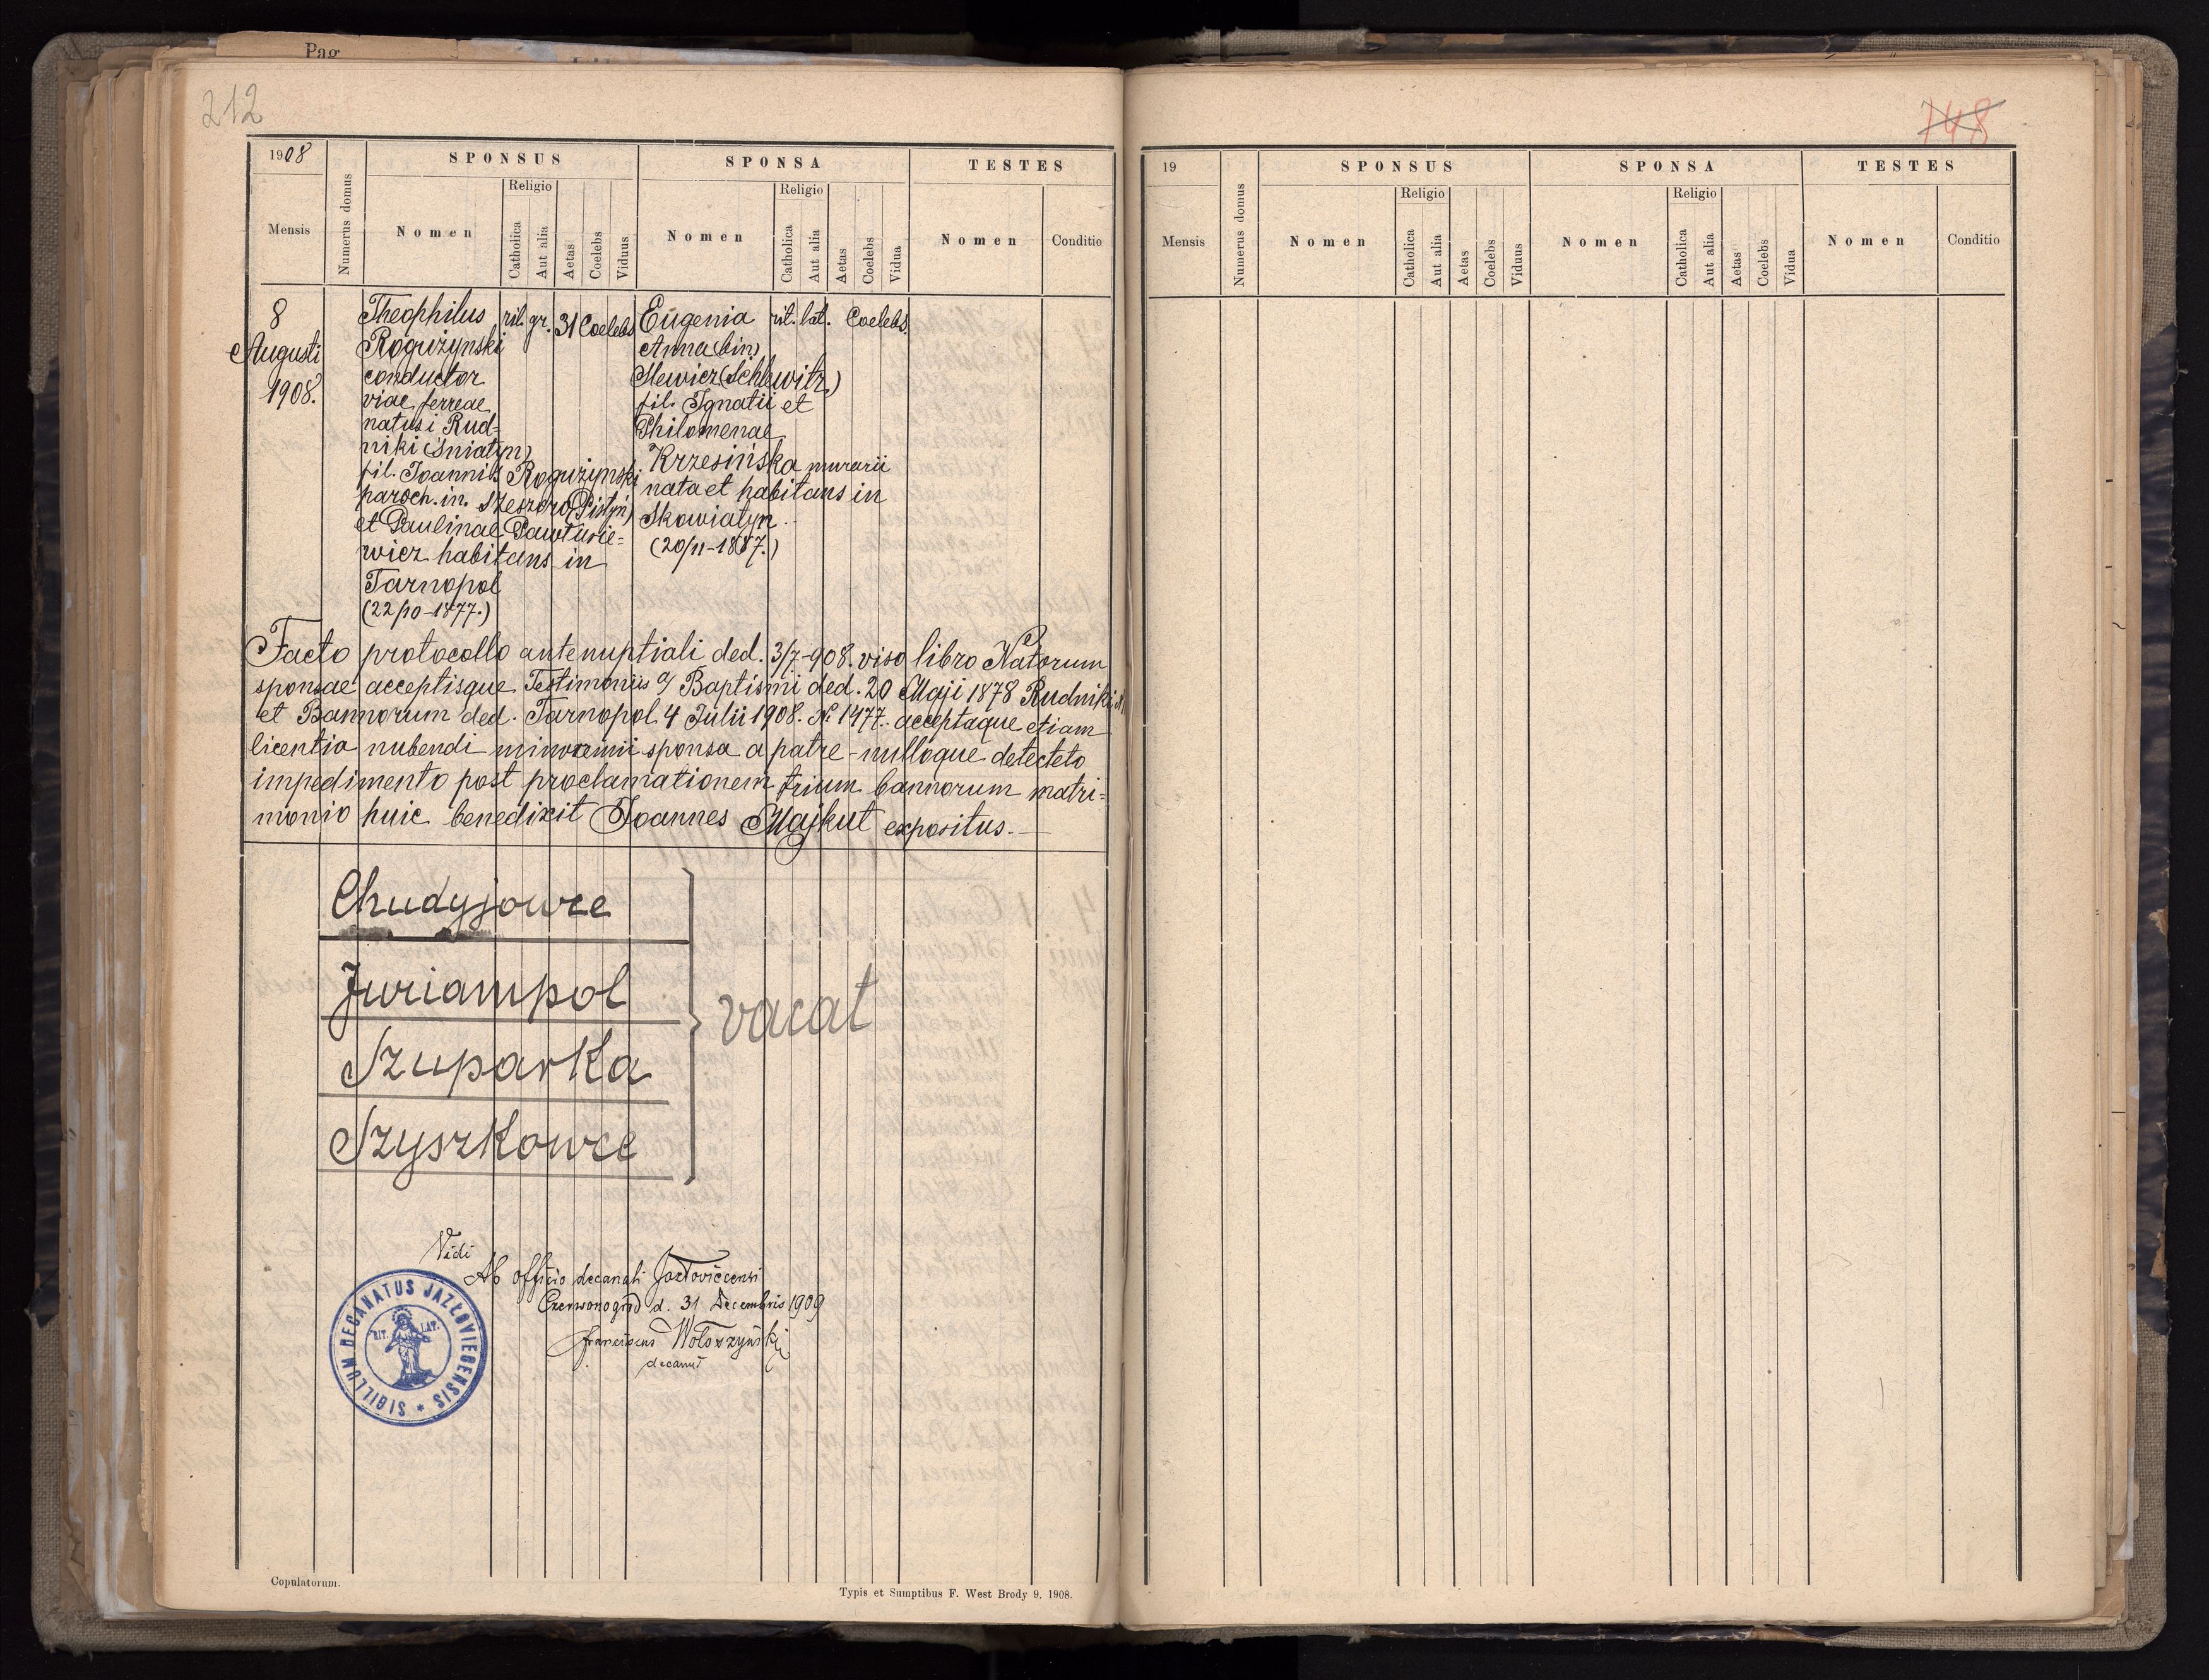 Pag
212
1908
SPONSUS
SPONSA
TESTES
Mensis
Numerus domus
Nomen
Religio
Catholica
Aut alia
Aetas
Coelebs
Viduus
Nomen
Religio
Catholica
Aut alia
Aetas
Coelebs
Vidua
Nomen
Conditio
8
Augusti
1908.
Theophilus rit. gr. 31 Coelebs
Roguzynski
conductor
viae ferreae
natus i Rud-
niki (Śniatyn)
fil. Joannis Roguzynski
paroch. in. Szeszory (Pistyń)
et Paulinae Pawłusie=
wicz habitans in
Tarnopol
(22/10-1877.)
Eugenia rit. lat. Coelebs.
Anna (bin)
Slewicz (Schlewitz)
fil. Ignatii et
Philomenae
Krzesińska murarii
nata et habitans in
Skowiatyn.
(20/11-1887.)
Facto protocollo antenuptiali ded. 3/7-908. viso libro Natorum
sponsae acceptisque Testimoniis a/ Baptismi ded. 20 Maji 1878 Rudniki
et Bannorum ded. Tarnopol 4 Julii 1908. № 1477. acceptaque etiam
licentia nubendi minorennii sponsa a patre - nulloque detecteto
impedimento post proclamationem trium bannorum matri=
monio huic benedixit Joannes Majkut expositus. —
Chudyjowce
Juriampol
Szuparka
Szyszkowce
vacat
Vidi
Ab officio decanali Jazłoviecensi
Czerwonogród d. 31 Decembris 1909
Franciscus Wołoszyński
decanus
SIGILLUM DECANATUS JAZŁOVIECENSIS *
RIT. LAT.
Copulatorum.
Typis et Sumptibus F. West Brody 9. 1908.
748
19
SPONSUS
SPONSA
TESTES
Mensis
Numerus domus
Nomen
Religio
Catholica
Aut alia
Aetas
Coelebs
Viduus
Nomen
Religio
Catholica
Aut alia
Aetas
Coelebs
Vidua
Nomen
Conditio